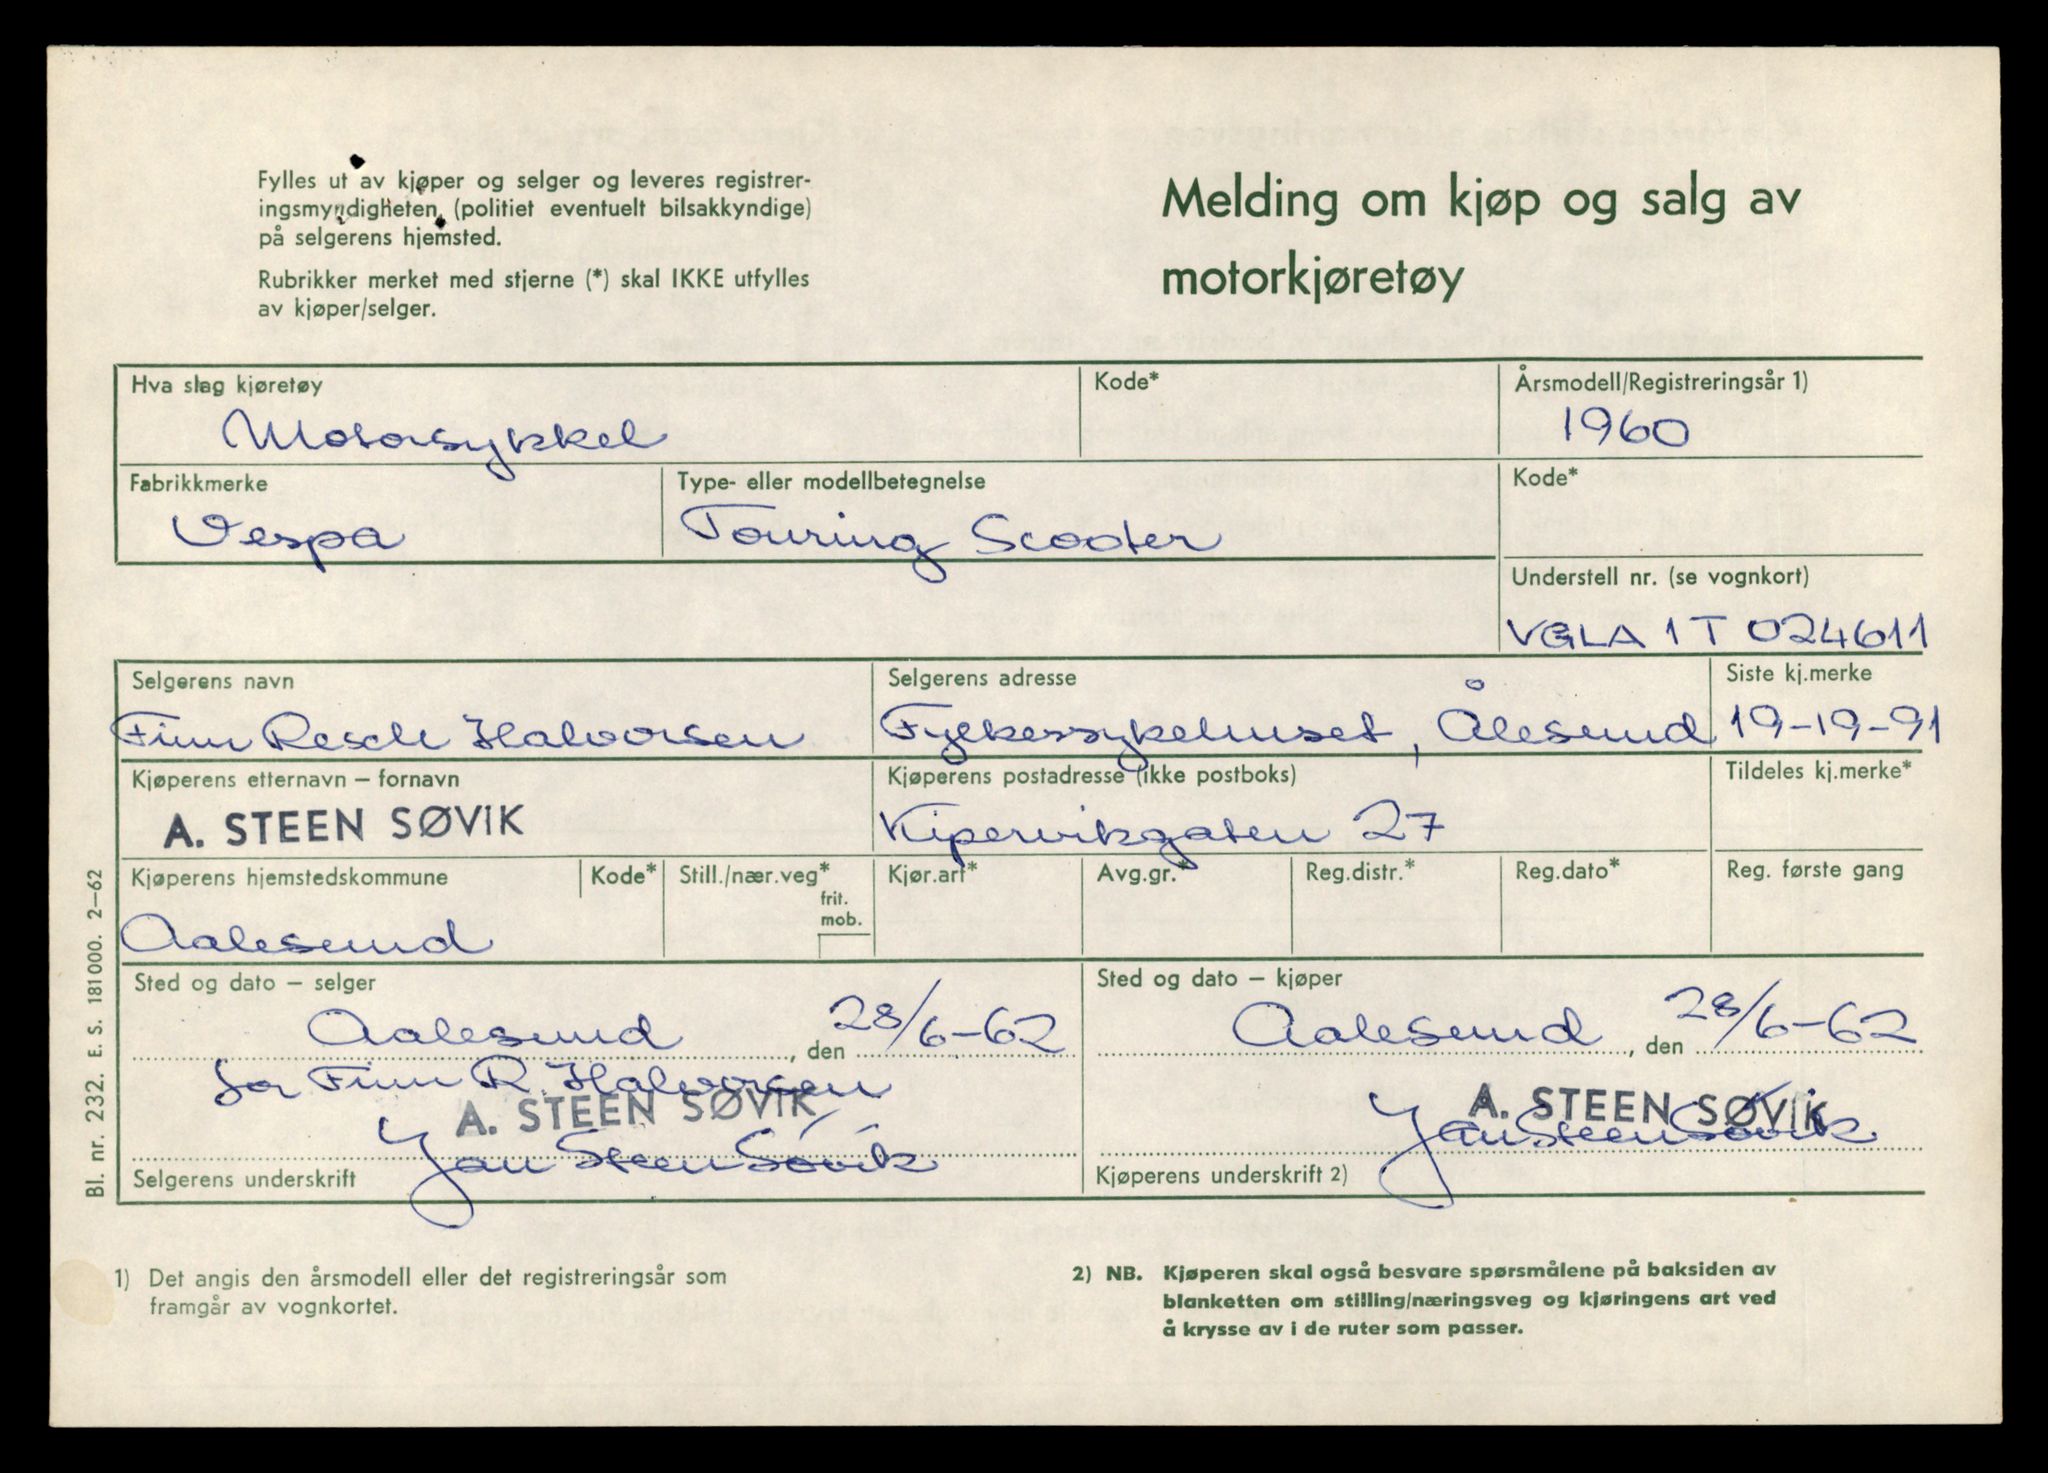 Fylles ut av kjøper og selger og leveres registrer-
ingsmyndigheten, (politiet eventuelt bilsakkyndige)
på selgerens hjemsted.
Rubrikker merket med stjerne (*) skal IKKE utfylles
av kjøper/selger.
Melding om kjøp og salg av
motorkjøretøy
Hva slag kjøretøy
Motorsykkel
Kode*
Årsmodell/Registreringsår 1)
1960
Fabrikkmerke
Vespa
Type- eller modellbetegnelse
Touring Scooter
Kode*
Understell nr. (se vognkort)
VGLA 1T 024611
Selgerens navn
Finn Resch Halvorsen
Selgerens adresse
Fylkessykehuset, Ålesund
Siste kj.merke
19-19-91
Kjøperens etternavn – fornavn
A. STEEN SØVIK
Kjøperens postadresse (ikke postboks)
Kipervikgaten 27
Tildeles kj.merke*
Kjøperens hjemstedskommune
Aalesund
Kode*
Still./nær.veg*
frit.
mob.
Kjør.art*
Avg.gr.*
Reg.distr.*
Reg.dato*
Reg. første gang
Sted og dato – selger
Aalesund, den 28/6-62
for Finn R. Halvorsen
A. STEEN SØVIK
Jan Steen Søvik
Selgerens underskrift
Sted og dato – kjøper
Aalesund, den 28/6-62
A. STEEN SØVIK
Jan Steen Søvik
Kjøperens underskrift 2)
Bl. nr. 232. E. S. 181000. 2–62
1) Det angis den årsmodell eller det registreringsår som
framgår av vognkortet.
2) NB. Kjøperen skal også besvare spørsmålene på baksiden av
blanketten om stilling/næringsveg og kjøringens art ved
å krysse av i de ruter som passer.